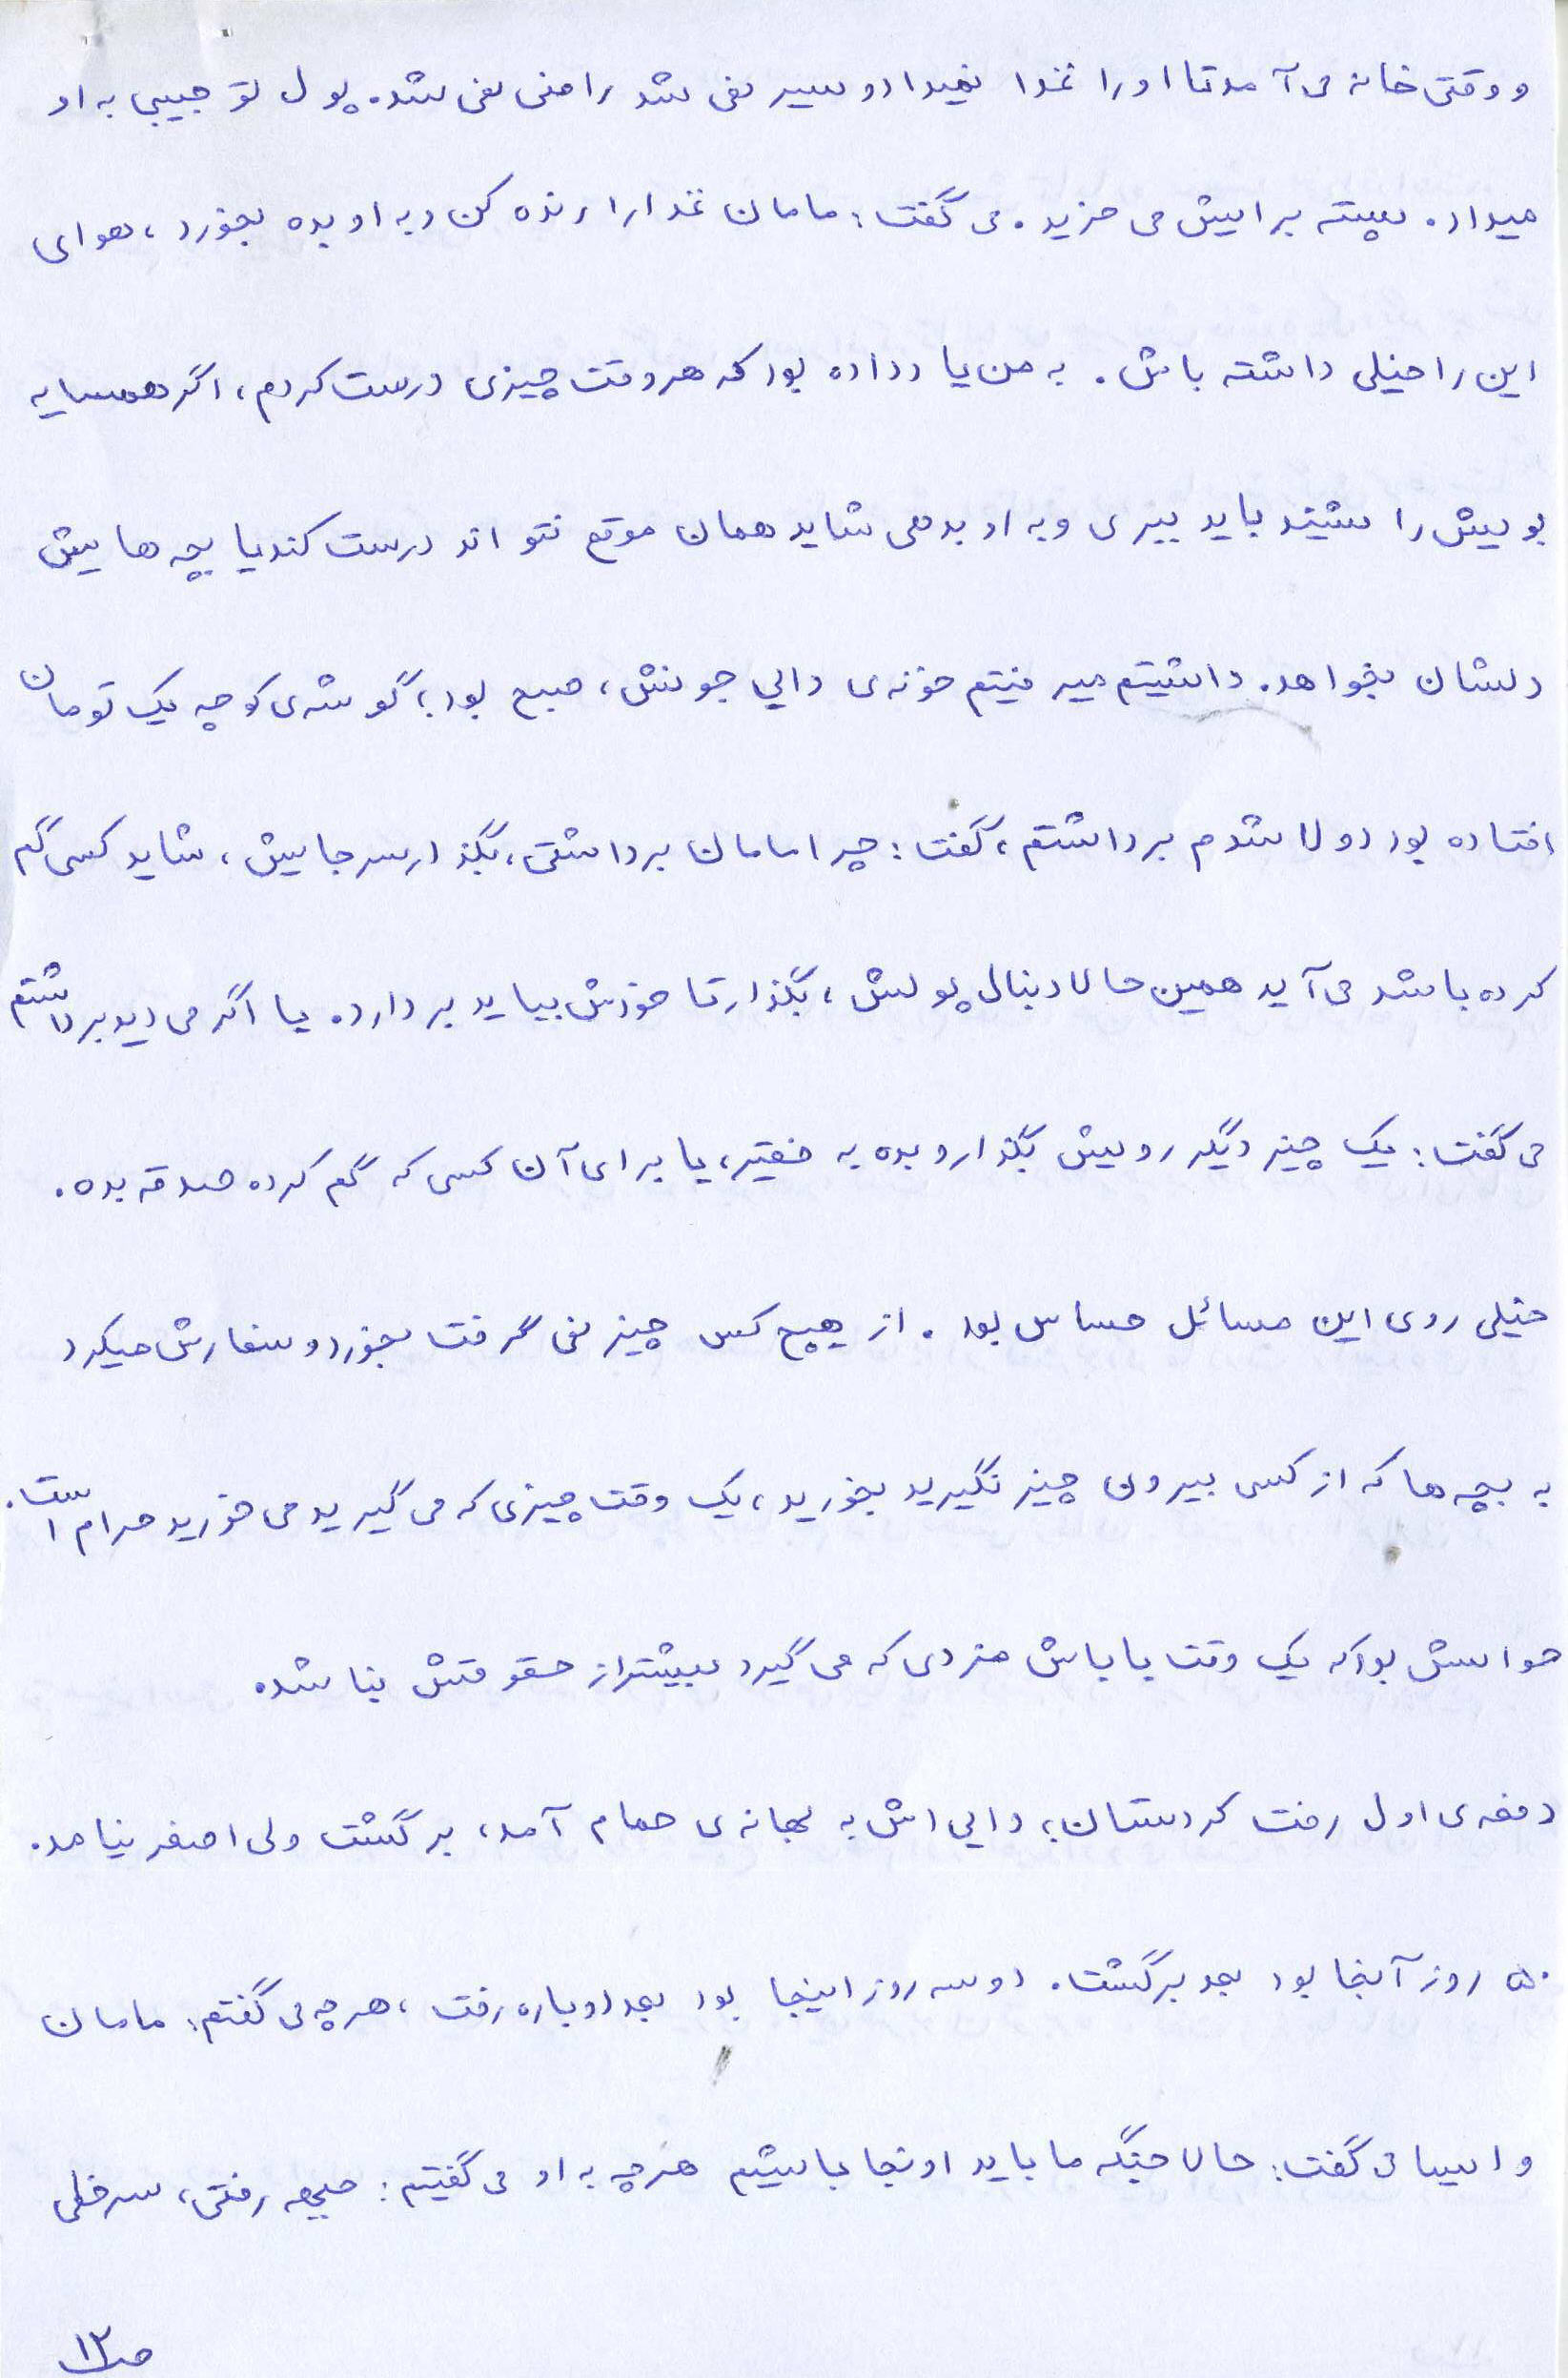 و وقتی خانه می آمد تا او را غذا نمیداد و سیر نمی شد راضی نمی شد. پول تو جیبی به او
میداد. پسته برایش می خرید. می گفت: مامان غذا را رنده کن و به او بده بخورد، هوای
این را خیلی داشته باش. به من یاد داده بود که هر وقت چیزی درست کردم، اگر همسایه
بویش را شنید باید ببری و به او بدهی شاید همان موقع نتواند درست کند یا بچه هایش
دلشان بخواهد. داشتیم میرفتیم خونه ی دایی جونش، صبح بود؛ گوشه ی کوچه یک تومان
افتاده بود دولا شدم برداشتم، گفت: چرا مامان برداشتی، بگذار سر جایش، شاید کسی گم
کرده باشد می آید همین حالا دنبال پولش، بگذار تا خودش بیاید بردارد. یا اگر می دید برداشتم
می گفت: یک چیز دیگر رویش بگذار و بده به فقیر، یا برای آن کسی که گم کرده صدقه بده.
خیلی روی این مسائل حساس بود. از هیچ کس چیز نمی گرفت بخورد و سفارش میکرد
به بچه ها که از کسی بیرون چیز نگیرید بخورید، یک وقت چیزی که می گیرید می خورید حرام است.
حواسش بود که یک وقت باباش مزدی که می گیرد بیشتر از حقوقش نباشد.
دفعه ی اول رفت کردستان، دایی اش به بهانه ی حمام آمد، برگشت ولی اصغر نیامد.
۵۰ روز آنجا بود بعد برگشت. دو سه روز اینجا بود بعد دوباره رفت، هر چه می گفتم: مامان
وایسا می گفت: حالا جنگه ما باید اونجا باشیم هر چه به او می گفتیم: جبهه رفتی، سر فلی
ص۱۲